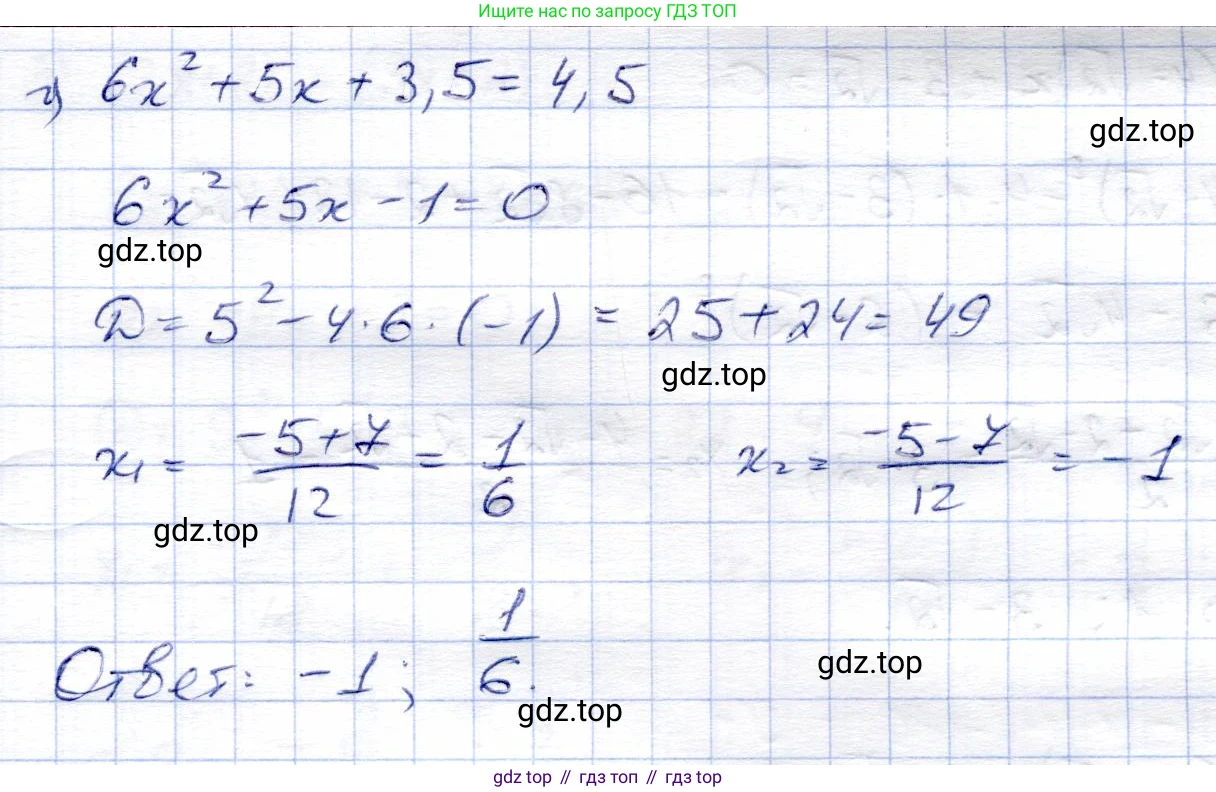 Ищите нас по запросу ГДЗ ТОП
ч) 6x² + 5x + 3,5 = 4,5
gdz.top
6x² + 5x - 1 = 0
gdz.top
D = 5² - 4·6·(-1) = 25 + 24 = 49
gdz.top
x₁ = (-5+7)/12 = 1/6    x₂ = (-5-7)/12 = -1
gdz.top
Ответ: -1; 1/6.
gdz.top
gdz.top
gdz top // гдз топ // gdz top